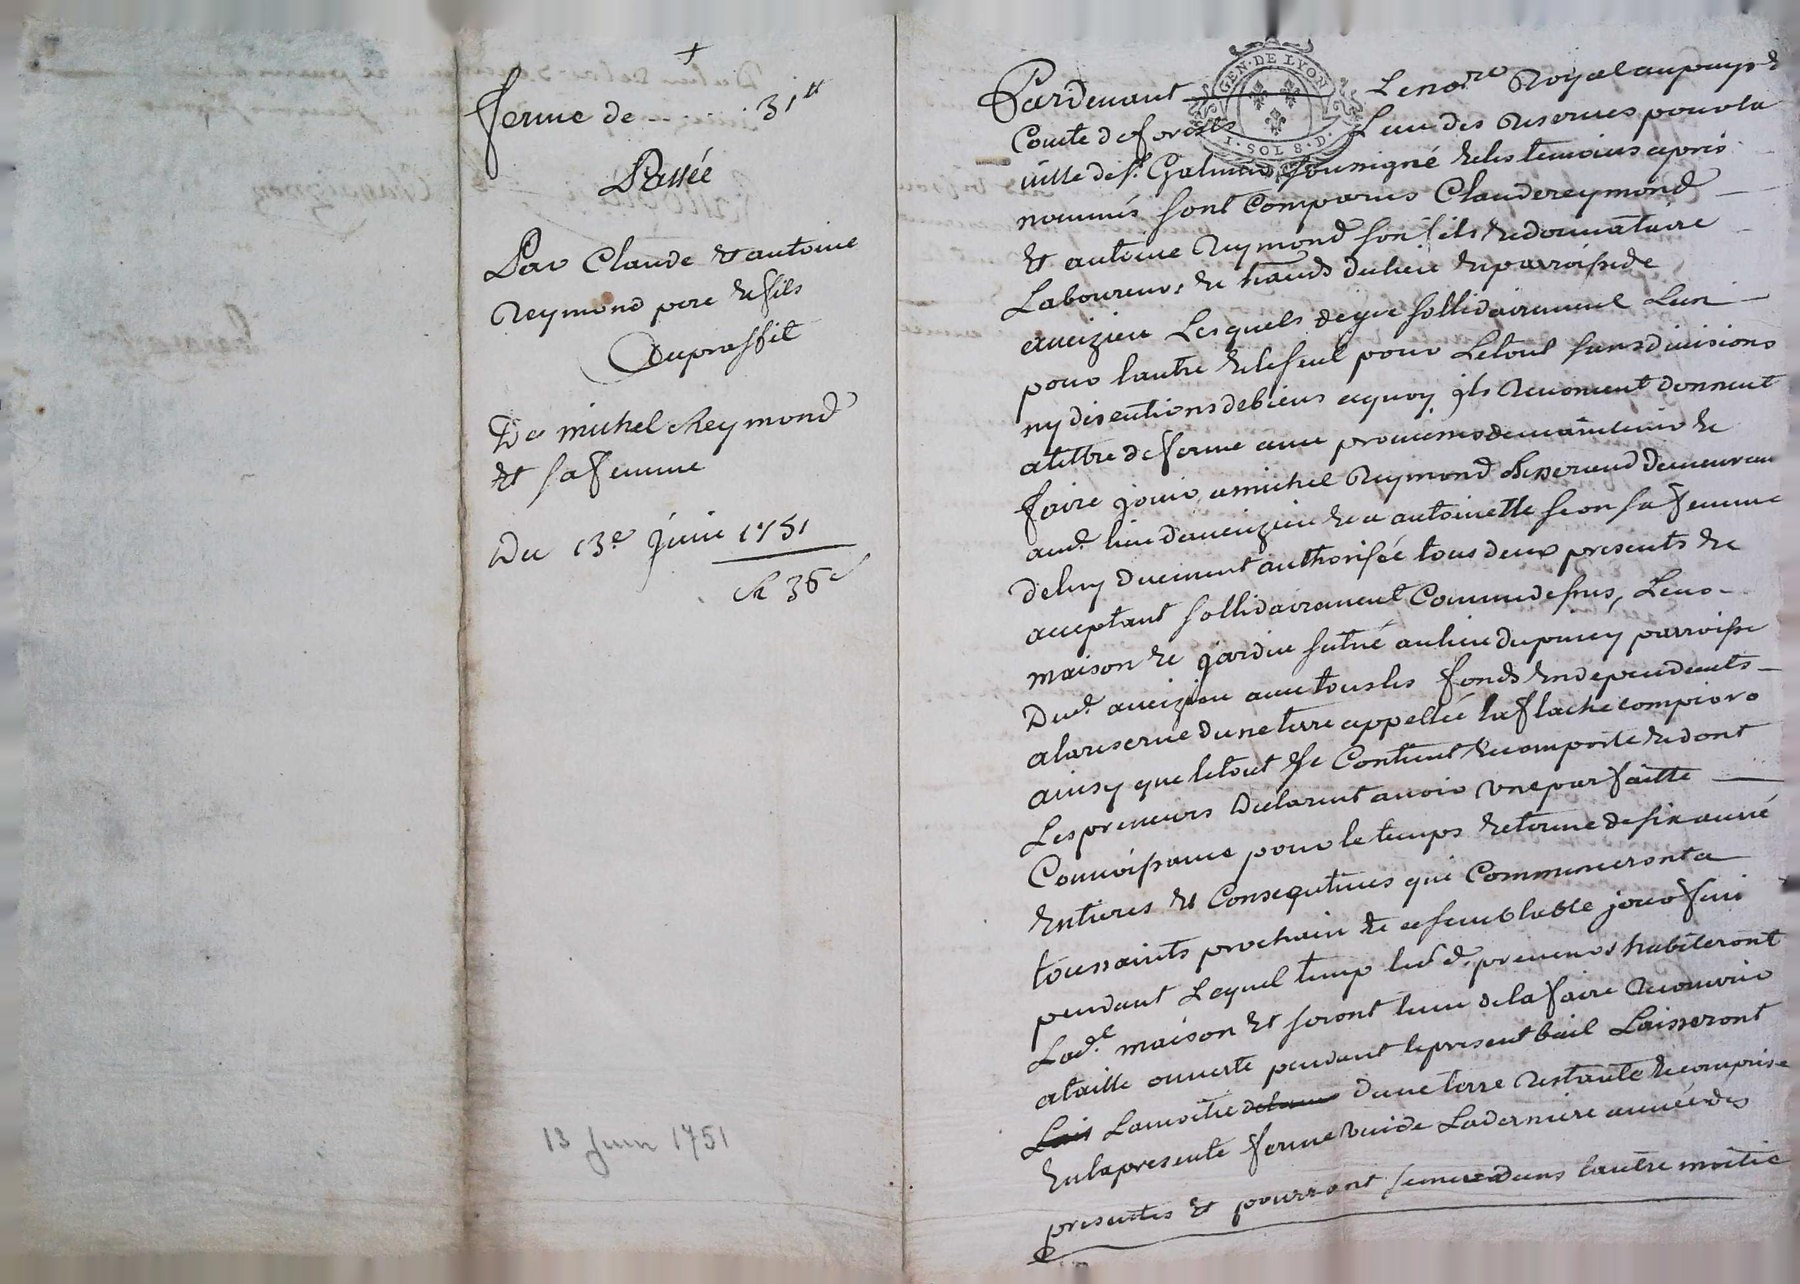 +
ferme de 31tt
Passée
Par Claude et antoine
Reymond pere et fils
Au proffit
De michel Reymond
et sa femme
Du 13e juin 1751
13 Juin 1751
GEN · DE LYON
I · SOL 8 · D ·
Pardevant Le no.re Royal au pays &
Comté de forests Lun des Reservés pour la
ville de st. Galmier soussigné et les temoins apres
nommés sont comparus Claude reymond
et antoine Reymond son fils et donnataire
Laboureurs et du lieu et parroisse de
aveizieu Lesquels de gré sollidairement Lun
pour lautre et le seul pour Le tout sans divisions
ny discutions de biens a quoy ils Renoncent donnent
a tittre de ferme avec promesses de maintenir et
faire jouir a michel Reymond demeurant
aud. lieu daveizieu et a antoinette sa femme
de luy duement authorisée tous deux presents et
acceptant sollidairement Comme dessus, Leur
maison et jardin situé au lieu du parroisse
Dud. aveizieu avec tous les fonds en dependants
a la reserve dune terre appellée la flache
ainsy que le tout se Contient et comporte et dont
Les preneurs declarent avoir une parfaitte
Connoissance pour le temps et terme de six année
Entieres et Consequtives qui Commenceront a
toussaints prochain et a semblable jour fini
pendant Lequel temp lesd. preneurs habiteront
Lad.e maison et seront tenu de la faire Recouvrir
a taille ouverte pendant le present bail Laisseront
La moitié dune terre restante et comprise
En la presente ferme vuide La derniere année des
presentes et pourront semer dans lautre moitié